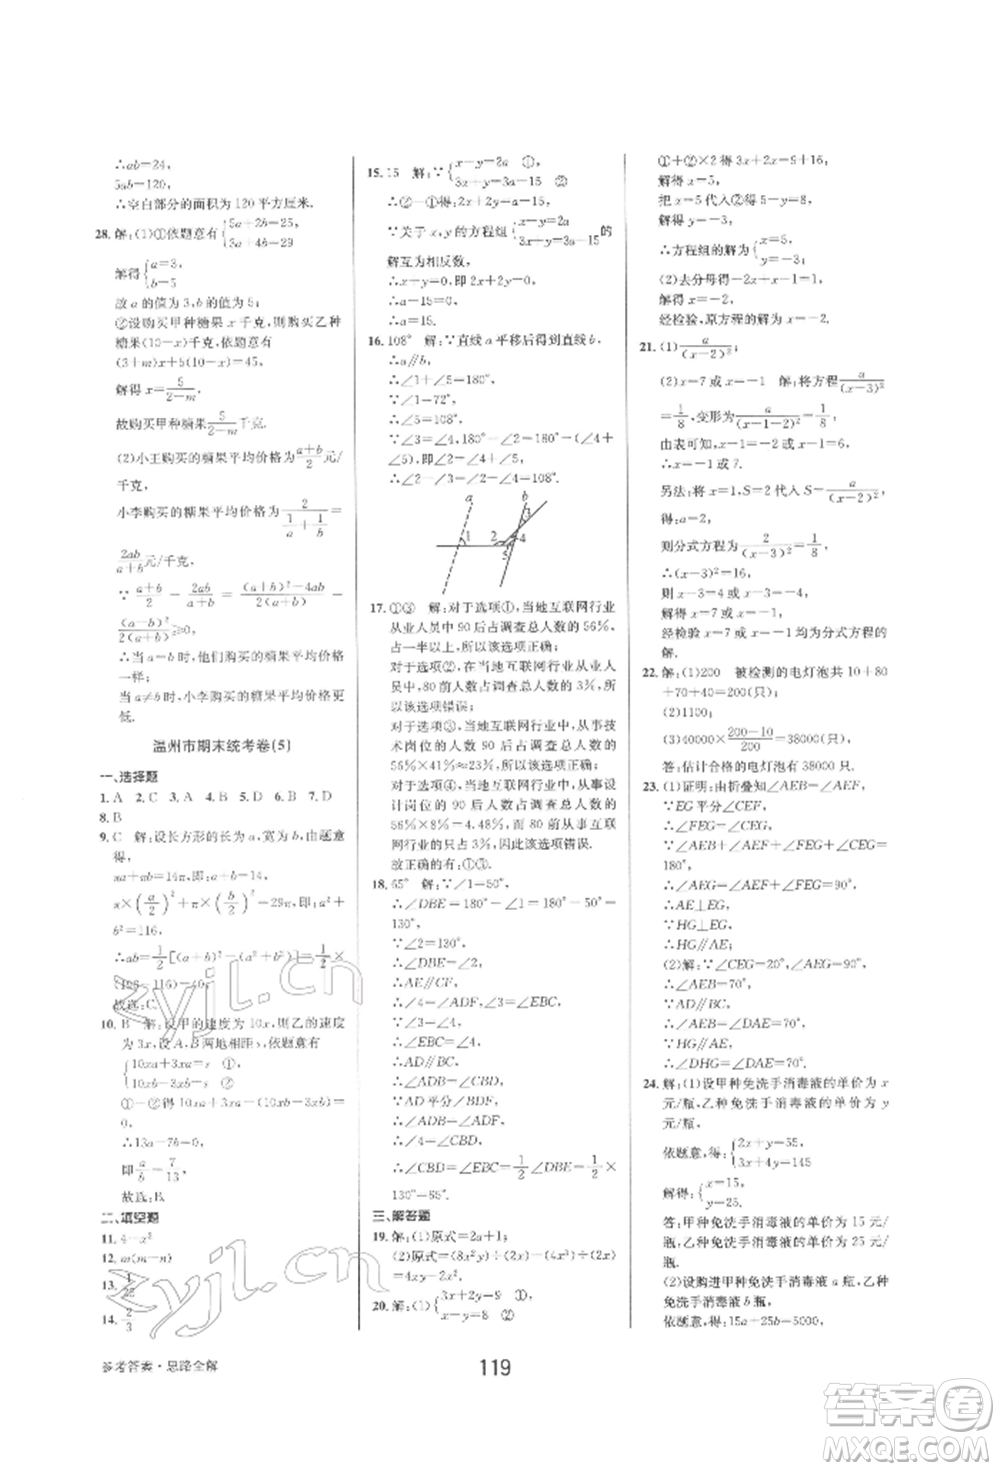 ∴ab=24,
5ab=120,
∴空白部分的面积为 120 平方厘米.
28. 解:(1)①依题意有{5a+2b=25
3a+4b=29
解得{a=3,
b=5
故 a 的值为 3,b 的值为 5;
②设购买甲种糖果 x 千克,则购买乙种
糖果(10-x)千克,依题意有
(3+m)x+5(10-x)=45,
解得 x=5/(2-m)
故购买甲种糖果5/(2-m)千克.
(2)小王购买的糖果平均价格为(a+b)/2元/
千克,
小李购买的糖果平均价格为2/(1/a+1/b)=
2ab/(a+b)元/千克,
∵(a+b)/2-2ab/(a+b)=((a+b)²-4ab)/(2(a+b))=
(a-b)²/(2(a+b))≥0,
∴当 a=b 时,他们购买的糖果平均价格
一样;
当 a≠b 时,小李购买的糖果平均价格更
低.
温州市期末统考卷(5)
一、选择题
1. A 2. C 3. A 4. B 5. D 6. B 7. D
8. B
9. C 解:设长方形的长为 a,宽为 b,由题意
得,
πa+πb=14π,即 a+b=14,
π×(a/2)²+π×(b/2)²=29π,即 a²+
b²=116,
∴ab=1/2[(a+b)²-(a²+b²)]=1/2×
(196-116)=40,
故选:C.
10. B 解:设甲的速度为 10x,则乙的速度
为 3x,设 A、B 两地相距 s,依题意有
①-②得
0,
∴13a-7b=0,
即a/b=7/13,
故选:B.
二、填空题
11. 4-x²
12. m(m-n)
13.
14. 2/3
15. 15 解:∵{x-y=2a ①
3x+y=3a-15 ②
∴②-①得:2x+2y=a-15,
∵关于 x,y 的方程组{x-y=2a
3x+y=3a-15的
解互为相反数,
∴x+y=0,即 2x+2y=0,
∴a-15=0,
∴a=15.
16. 108° 解:∵直线 a 平移后得到直线 b,
∴a∥b,
∴∠1+∠5=180°,
∵∠1=72°,
∴∠5=108°,
∵∠2=∠4+∠3,180°-∠2=180°-(∠4+
∠5),
∴∠2-∠3=∠4=108°.
a
b
1
2
3
4
5
17. ①③ 解:对于选项①,当地互联网行业
从业人员中 90 后占调查总人数的 56%,
占一半以上,所以该选项正确;
对于选项②,在当地互联网行业从业人
员中,80 前占调查总人数的 3%,所以该
选项错误;
对于选项③,当地互联网行业中,从事技
术岗位的人数 90 后占调查总人数的
56%×41%=23%,所以该选项正确;
对于选项④,当地互联网行业中,从事设
计岗位的 90 后人数占调查总人数的
56%×8%=4.48%,而 80 前从事互联
网行业的只占 3%,所以该选项错误.
故正确的有:①③.
18. 65° 解:∵∠1=50°,
∴∠DBE=180°-∠1=180°-50°=
130°,
∵∠2=∠DBE,
∴AE∥CF,
∴∠4=∠ADF,∠3=∠EBC,
∵∠3=∠4,
∴∠EBC=∠4,
∴AD∥BC,
∴∠ADB=∠CBD,
∵AD平分∠BDF,
∴∠ADB=∠ADF,
∴∠4=∠CBD,
∴∠CBD=∠EBC=1/2∠DBE=1/2×
130°=65°.
三、解答题
19. 解:(1)原式=2a+1;
(2)原式=(8x²y)÷(2x)-(4x³)÷(2x)
=4xy-2x².
20. 解:(1){3x+2y=9 ①
x-y=8 ②
①+②×2 得 3x+2x=9+16,
解得 x=5,
把 x=5 代入②得 5-y=8,
解得 y=-3.
∴方程组的解为{x=5,
y=-3.
(2)去分母得-2x+x-2=1,
解得 x=-3.
经检验,原方程的解为 x=-3.
21. (1)a/(x-2)²;
(2)x=7 或 x=-1 解:将方程a/(x-3)²
=1/8,变形为a/(x-1-2)²=1/8,
由表可知,x-1=-2 或 x-1=6,
∴x=-1 或 7.
另法:将 x=1,S=2 代入 S=a/(x-2)²,
得:a=2,
则分式方程为2/(x-3)²=1/8,
∴(x-3)²=16,
则 x-3=4 或 x-3=-4,
解得:x=7 或 x=-1,
经检验 x=7 或 x=-1 均为分式方程的
解.
22. 解:(1)200 被检测的电灯泡共 10+80
+70+40=200(只);
(2)1100;
(3)40000×(200-10)/200=38000(只),
答:估计合格的电灯泡有 38000 只.
23. (1)证明:由折叠知∠AEB=∠AEF,
∵EG 平分∠CEF,
∴∠FEG=∠CEG,
∵∠AEB+∠AEF+∠FEG+∠CEG=
180°,
∴∠AEG=∠AEF+∠FEG=90°,
∴AE⊥EG,
∵HG⊥EG,
∴HG∥AE;
(2)解:∵∠CEG=20°,∠AEG=90°,
∴∠AEB=70°,
∵AD∥BC,
∴∠AEB=∠DAE=70°,
∵HG∥AE,
∴∠DHG=∠DAE=70°.
24. 解:(1)设甲种免洗手消毒液的单价为 x
元/瓶,乙种免洗手消毒液的单价为 y
元/瓶,
依题意,得:{2x+y=55,
3x+4y=145
解得:{x=15,
y=25.
答:甲种免洗手消毒液的单价为 15 元/
瓶,乙种免洗手消毒液的单价为 25 元/
瓶.
(2)设购进甲种免洗手消毒液 a 瓶,乙种
免洗手消毒液 b 瓶,
依题意,得:15a+25b=5000,
参考答案·思路全解
119
zyjl.cn
zyjl.cn
答案圈
MXQE.COM